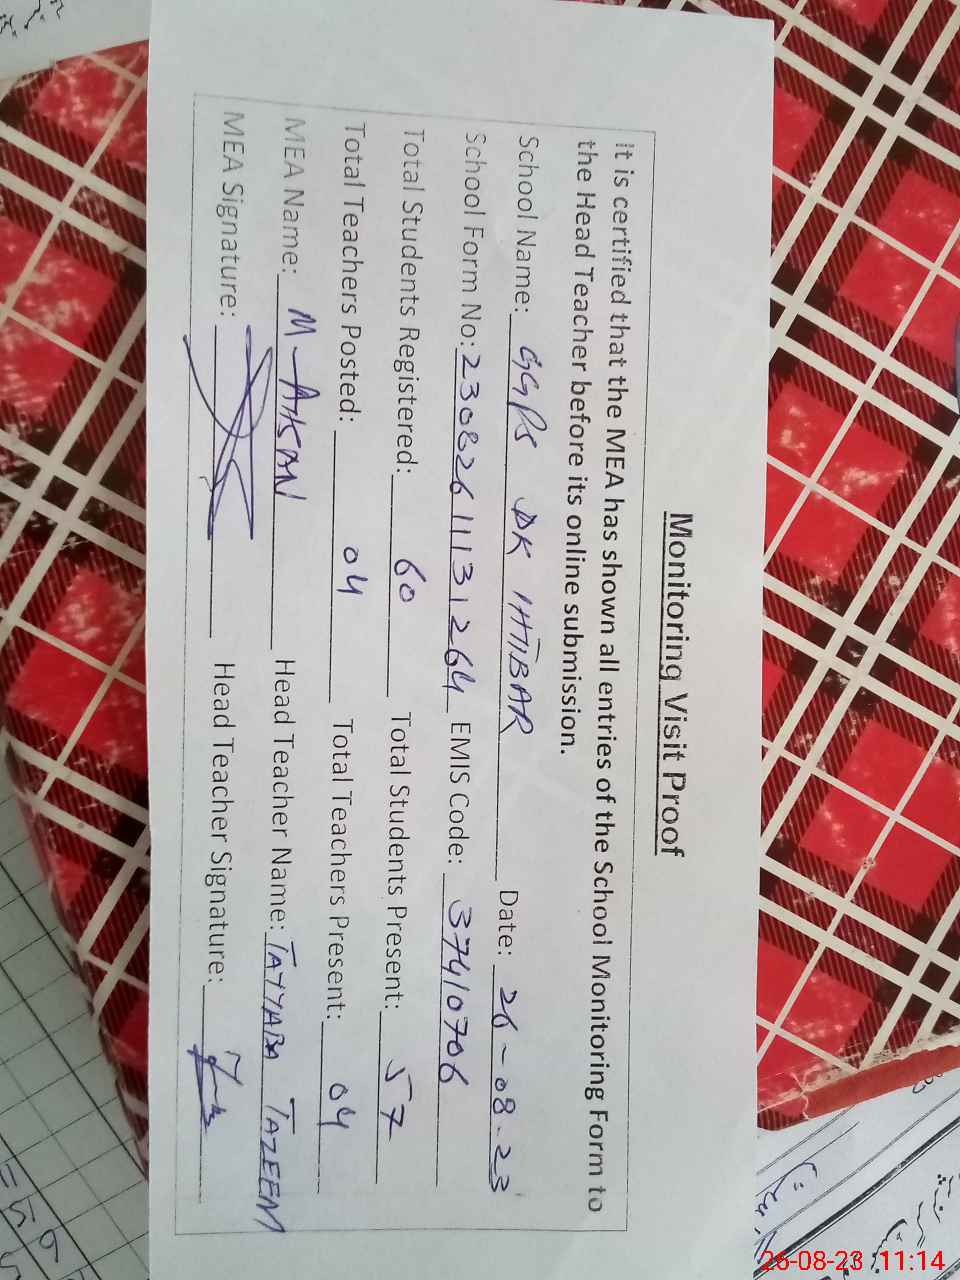 Monitoring Visit Proof
it is certified that the MEA has shown all entries of the School Monitoring Form to
the Head Teacher before its online submission.
School Name: GGPS DK IHTIBAR Date: 26-08-23
School Form No: 230826111131264 EMIS Code: 37410706
Total Students Registered: 60 Total Students Present: 57
Total Teachers Posted: 04 Total Teachers Present: 04
MEA Name: M-AHSAN Head Teacher Name: TAYYABA TAZEEM
MEA Signature: Head Teacher Signature:
26-08-23 11:14